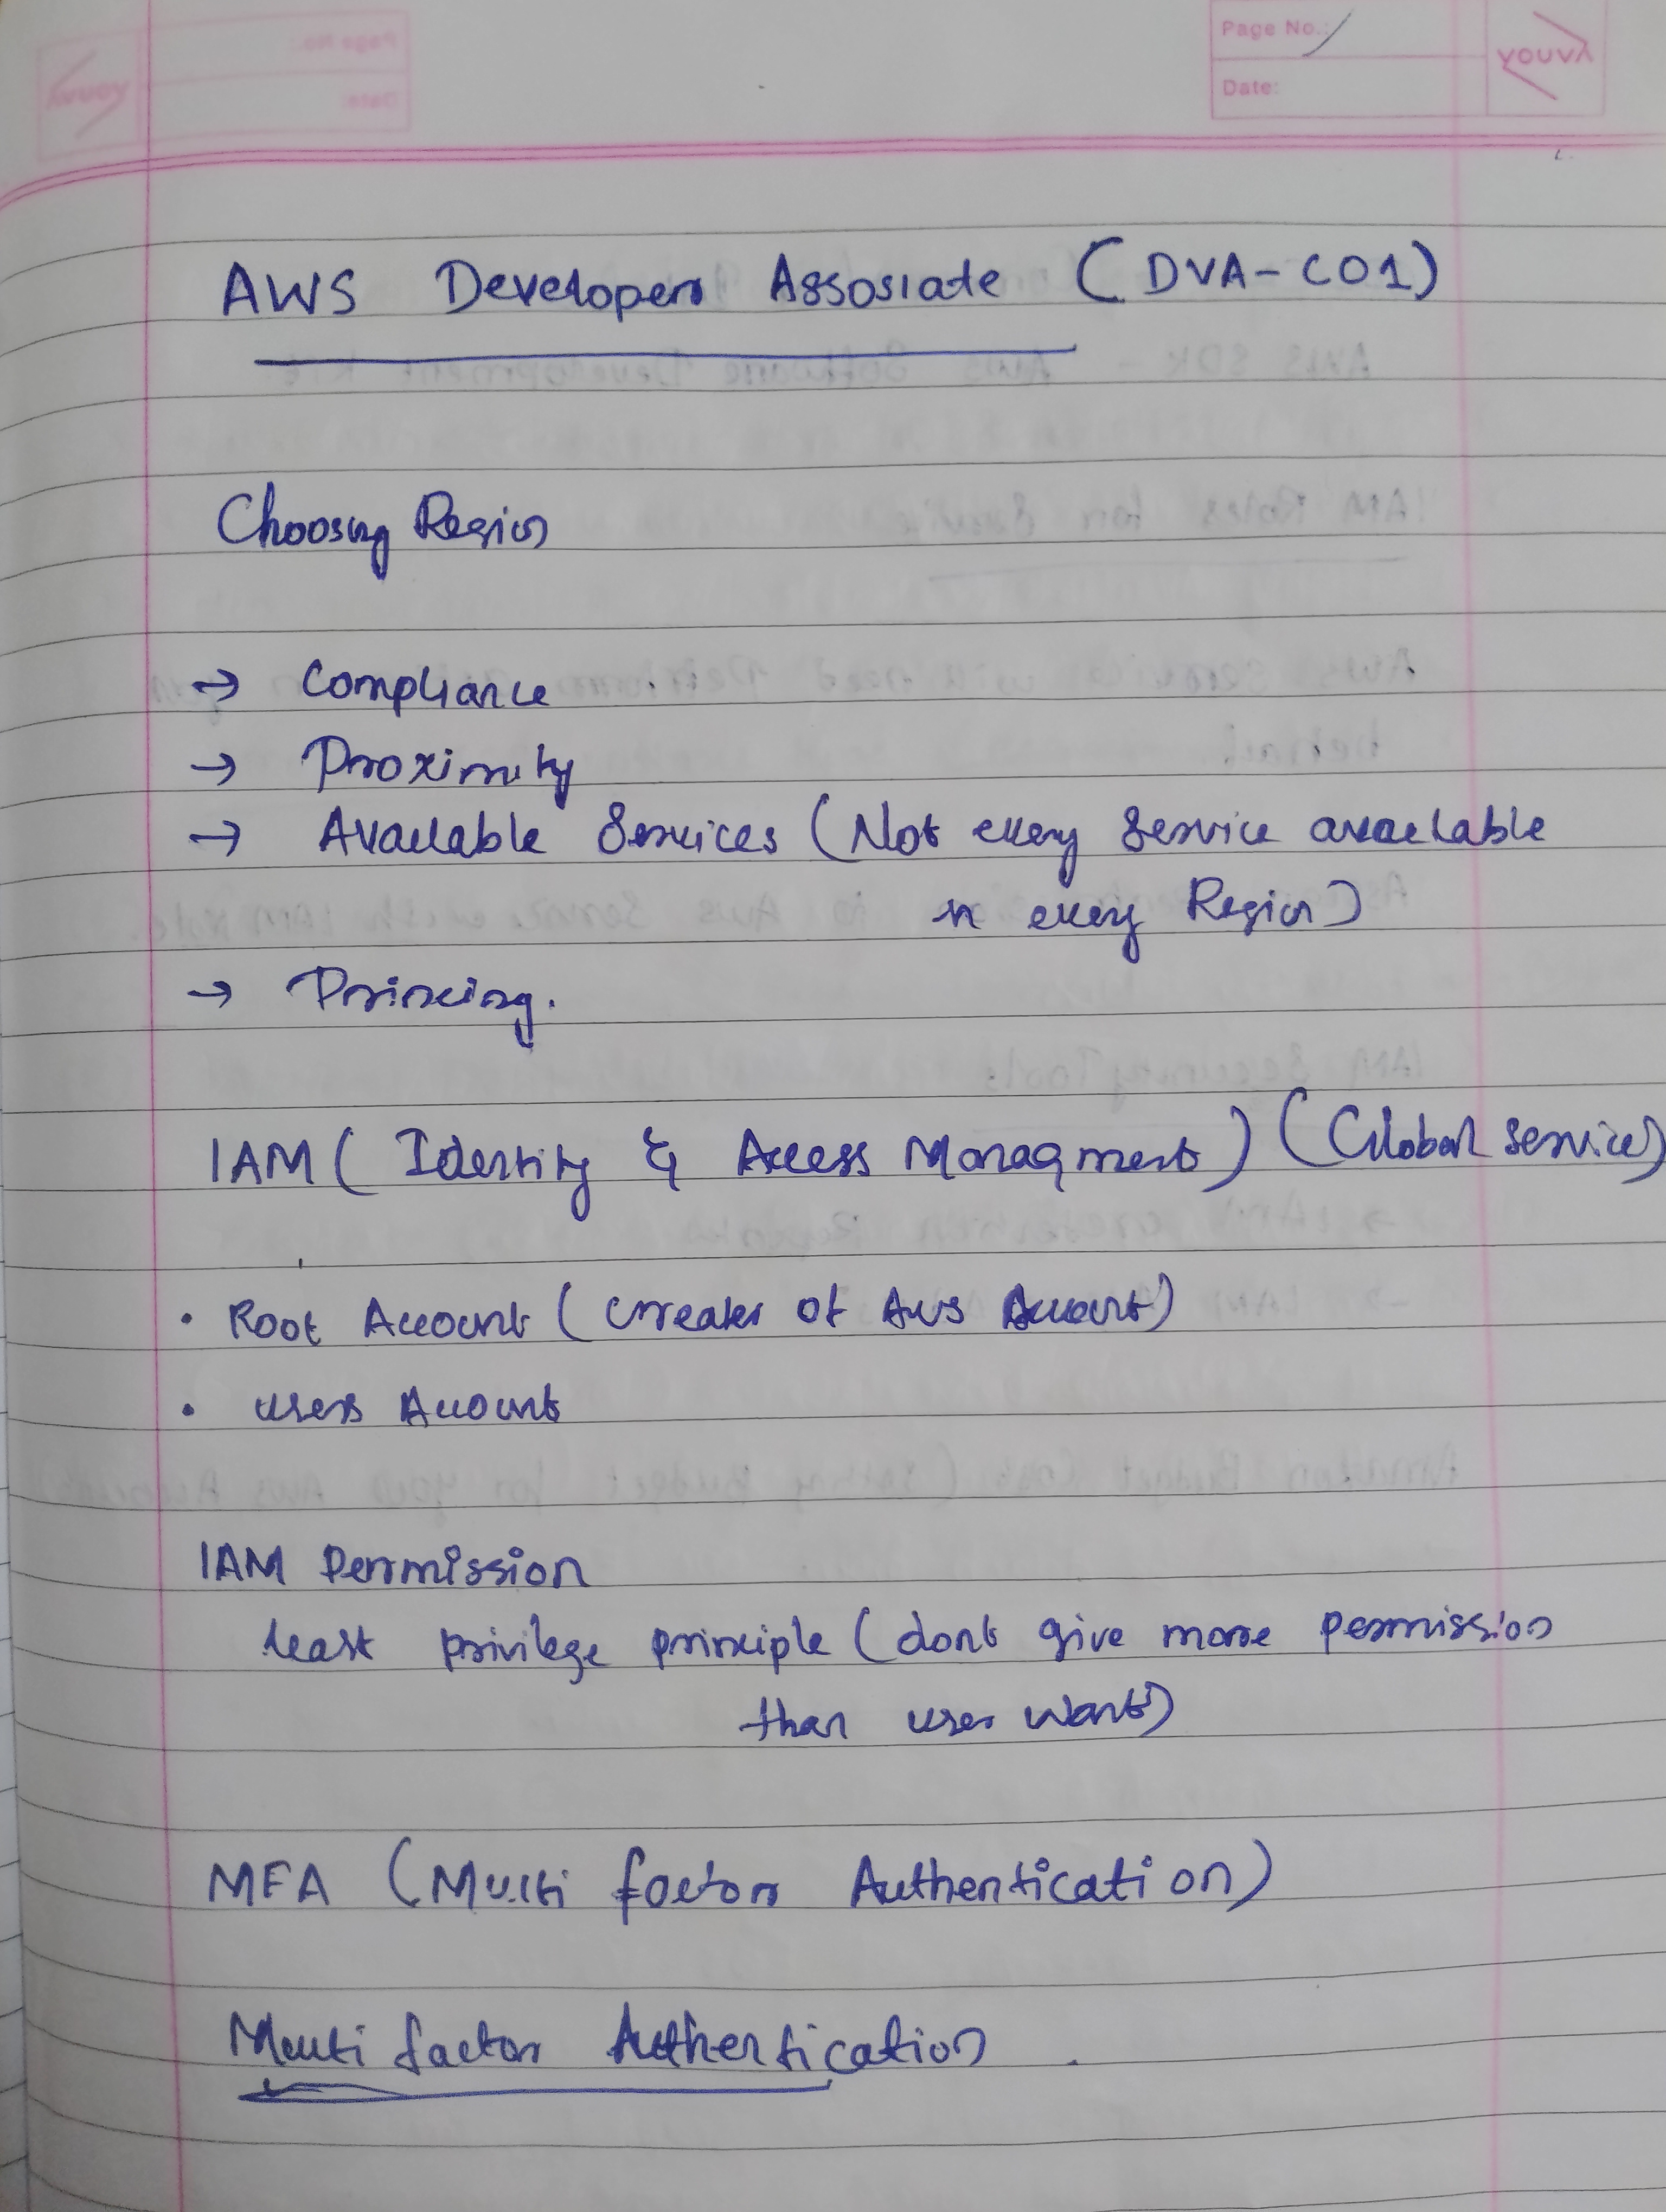 Page No.:
Date:
YOUVA
AWS Developer Assosiate (DVA-C01)
Choosing Region
→ Compliance
→ Proximity
→ Available Services (Not every Service available
in every Region)
→ Princing.
IAM ( Identity & Access Managment) (Global service)
• Root Account ( creater of Aws Account)
• users Account
IAM Permission
least privilege principle ( dont give more permission
than user want)
MFA (Multi factor Authentication)
Multi factor Authentication